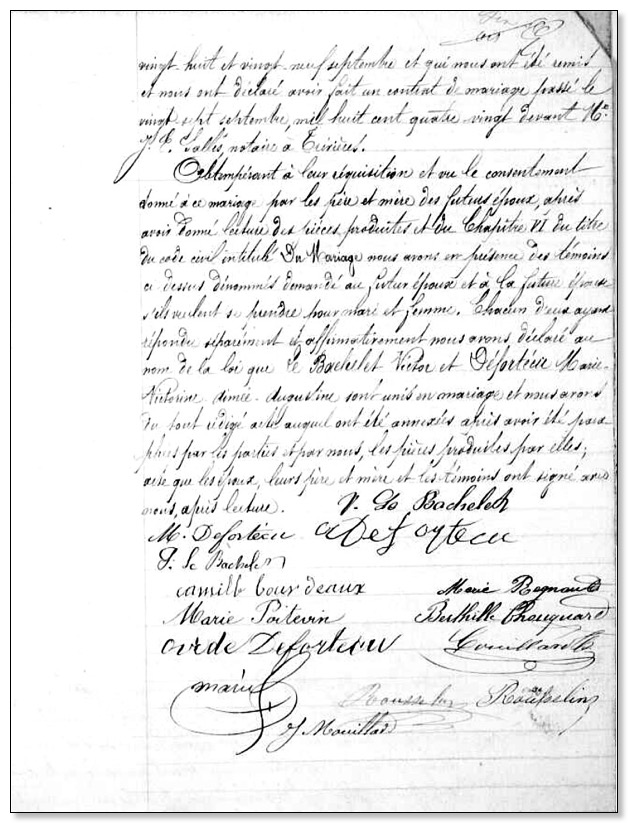 vingt huit et vingt neuf septembre et qui nous ont été remis
et nous ont déclaré avoir fait un contrat de mariage passé le
vingt sept septembre, mil huit cent quatre vingt devant Me
notaire à Trévières.
Obtempérant à leur réquisition et vu le consentement
donné à ce mariage par les père et mère des futurs époux, après
avoir donné lecture des pièces produites et du Chapitre VI du titre
du code civil intitulé Du Mariage nous avons en présence des témoins
ci dessus dénommés demandé au futur époux et à la future épouse
s'ils veulent se prendre pour mari et femme. Chacun d'eux ayant
répondu séparément et affirmativement nous avons déclaré au
nom de la loi que Le Bachelet Victor et Deforteau Marie
Victorine Aimée Augustine sont unis en mariage et nous avons
du tout rédigé acte auquel ont été annexées après avoir été para-
phées par les parties et par nous, les pièces produites par elles;
acte que les époux, leurs père et mère et les témoins ont signé avec
nous, après lecture. V. Le Bachelet
M. Deforteau A Deforteau
Le Bachelet
camille bourdeaux Marie Regnault
Marie Poitevin Berthille
Deforteau Couillard
marie
Rousselin Rousselin
Mouillard